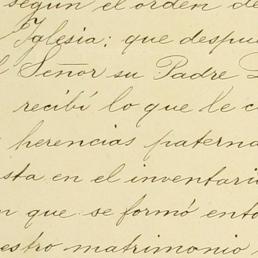 según el orden de
Iglesia; que despu
l Señor su Padre D
recibí lo que le c
herencias paterna
sta en el inventari
n que se formó ento
estro matrimonio